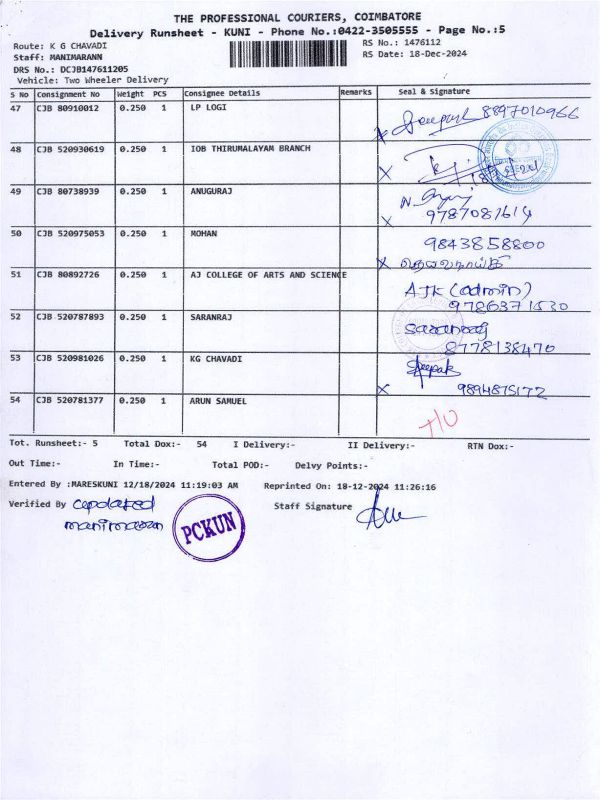 THE PROFESSIONAL COURIERS, COIMBATORE
Delivery Runsheet - KUNI - Phone No.:0422-3505555 - Page No.:5
Route: K G CHAVADI
RS No.: 1476112
Staff: MANIMARANN
RS Date: 18-Dec-2024
DRS No.: DCJB147611205
Vehicle: Two Wheeler Delivery
S No Consignment No Weight PCS Consignee Details Remarks Seal & Signature
47 CJB 80910012 0.250 1 LP LOGI
Deepak 8897010966
48 CJB 520930619 0.250 1 IOB THIRUMALAYAM BRANCH
49 CJB 80738939 0.250 1 ANUGURAJ
9787087614
50 CJB 520975053 0.250 1 MOHAN
9843858800
51 CJB 80892726 0.250 1 AJ COLLEGE OF ARTS AND SCIENCE
AJK (admin)
9786371530
52 CJB 520787893 0.250 1 SARANRAJ
Saranraj
8778138470
53 CJB 520981026 0.250 1 KG CHAVADI
Deepak
9894875172
54 CJB 520781377 0.250 1 ARUN SAMUEL
Tot. Runsheet:- 5 Total Dox:- 54 I Delivery:- II Delivery:- RTN Dox:-
Out Time:- In Time:- Total POD:- Delvy Points:-
Entered By :MARESKUNI 12/18/2024 11:19:03 AM Reprinted On: 18-12-2024 11:26:16
Verified By updated
Staff Signature
manimaran
PCKUN